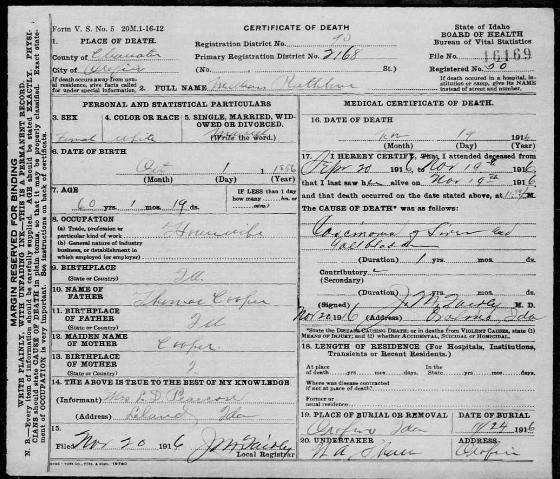 Form V. S. No. 5 20M.1-16-12
CERTIFICATE OF DEATH
State of Idaho
BOARD OF HEALTH
Bureau of Vital Statistics
1. PLACE OF DEATH.
County of Clearwater
City of Orofino
Registration District No.
Primary Registration District No. 2168
(No. St.)
File No. 16169
Registered No. 20
If death occurs away from usual residence, give facts called for under special information.
If death occurred in a hospital, institution or camp, give its NAME instead of street and number.
2. FULL NAME Rathbun
PERSONAL AND STATISTICAL PARTICULARS
3. SEX
4. COLOR OR RACE
5. SINGLE, MARRIED, WIDOWED OR DIVORCED.
Female White
(Write the word.)
6. DATE OF BIRTH
Oct 1 1856
(Month) (Day) (Year)
7. AGE
60 yrs. 1 mos. 19 ds.
IF LESS than 1 day how many hrs. or min?
8. OCCUPATION
(a) Trade, profession or particular kind of work Housewife
(b) General nature of industry, business, or establishment in which employed (or employer)
9. BIRTHPLACE
(State or Country) Ill
10. NAME OF FATHER Thomas Cooper
11. BIRTHPLACE OF FATHER
(State or Country) Ill
12. MAIDEN NAME OF MOTHER Cooper
13. BIRTHPLACE OF MOTHER
(State or Country) ?
14. THE ABOVE IS TRUE TO THE BEST OF MY KNOWLEDGE
(Informant) Mrs L. D. Pearson
(Address) Leland Ida
15.
Filed Nov 20 1916 J M Fairley
Local Registrar
MEDICAL CERTIFICATE OF DEATH.
16. DATE OF DEATH
Nov 19 1916
(Month) (Day) (Year)
17. I HEREBY CERTIFY, That I attended deceased from
Sept 20 1916, to Nov 19th 1916
that I last saw her alive on Nov 19th 1916
and that death occurred on the date stated above, at M.
The CAUSE OF DEATH* was as follows:
Carcinoma of Liver and
Gallbladder
(Duration) 1 yrs. mos. ds.
Contributory
(Secondary)
(Duration) yrs. mos. ds.
(Signed) J. M. Fairley M. D.
Nov 20 1916 (Address) Ida
*State the DISEASE CAUSING DEATH; or in death from VIOLENT CAUSES, state (1) MEANS OF INJURY; and (2) whether ACCIDENTAL, SUICIDAL or HOMICIDAL.
18. LENGTH OF RESIDENCE (For Hospitals, Institutions, Transients or Recent Residents.)
At place of death yrs. mos. days. In the State yrs. mos. ds.
Where was disease contracted
if not at place of death?
Former or
usual residence
19. PLACE OF BURIAL OR REMOVAL
DATE OF BURIAL
Orofino Ida 11/24 1916
20. UNDERTAKER
ADDRESS
Orofino
MARGIN RESERVED FOR BINDING
WRITE PLAINLY, WITH UNFADING INK—THIS IS A PERMANENT RECORD.
N. B.—Every item of information should be carefully supplied. AGE should be stated EXACTLY. PHYSICIANS should state CAUSE OF DEATH in plain terms, so that it may be properly classified. Exact statement of OCCUPATION is very important. See instructions on back of certificate.